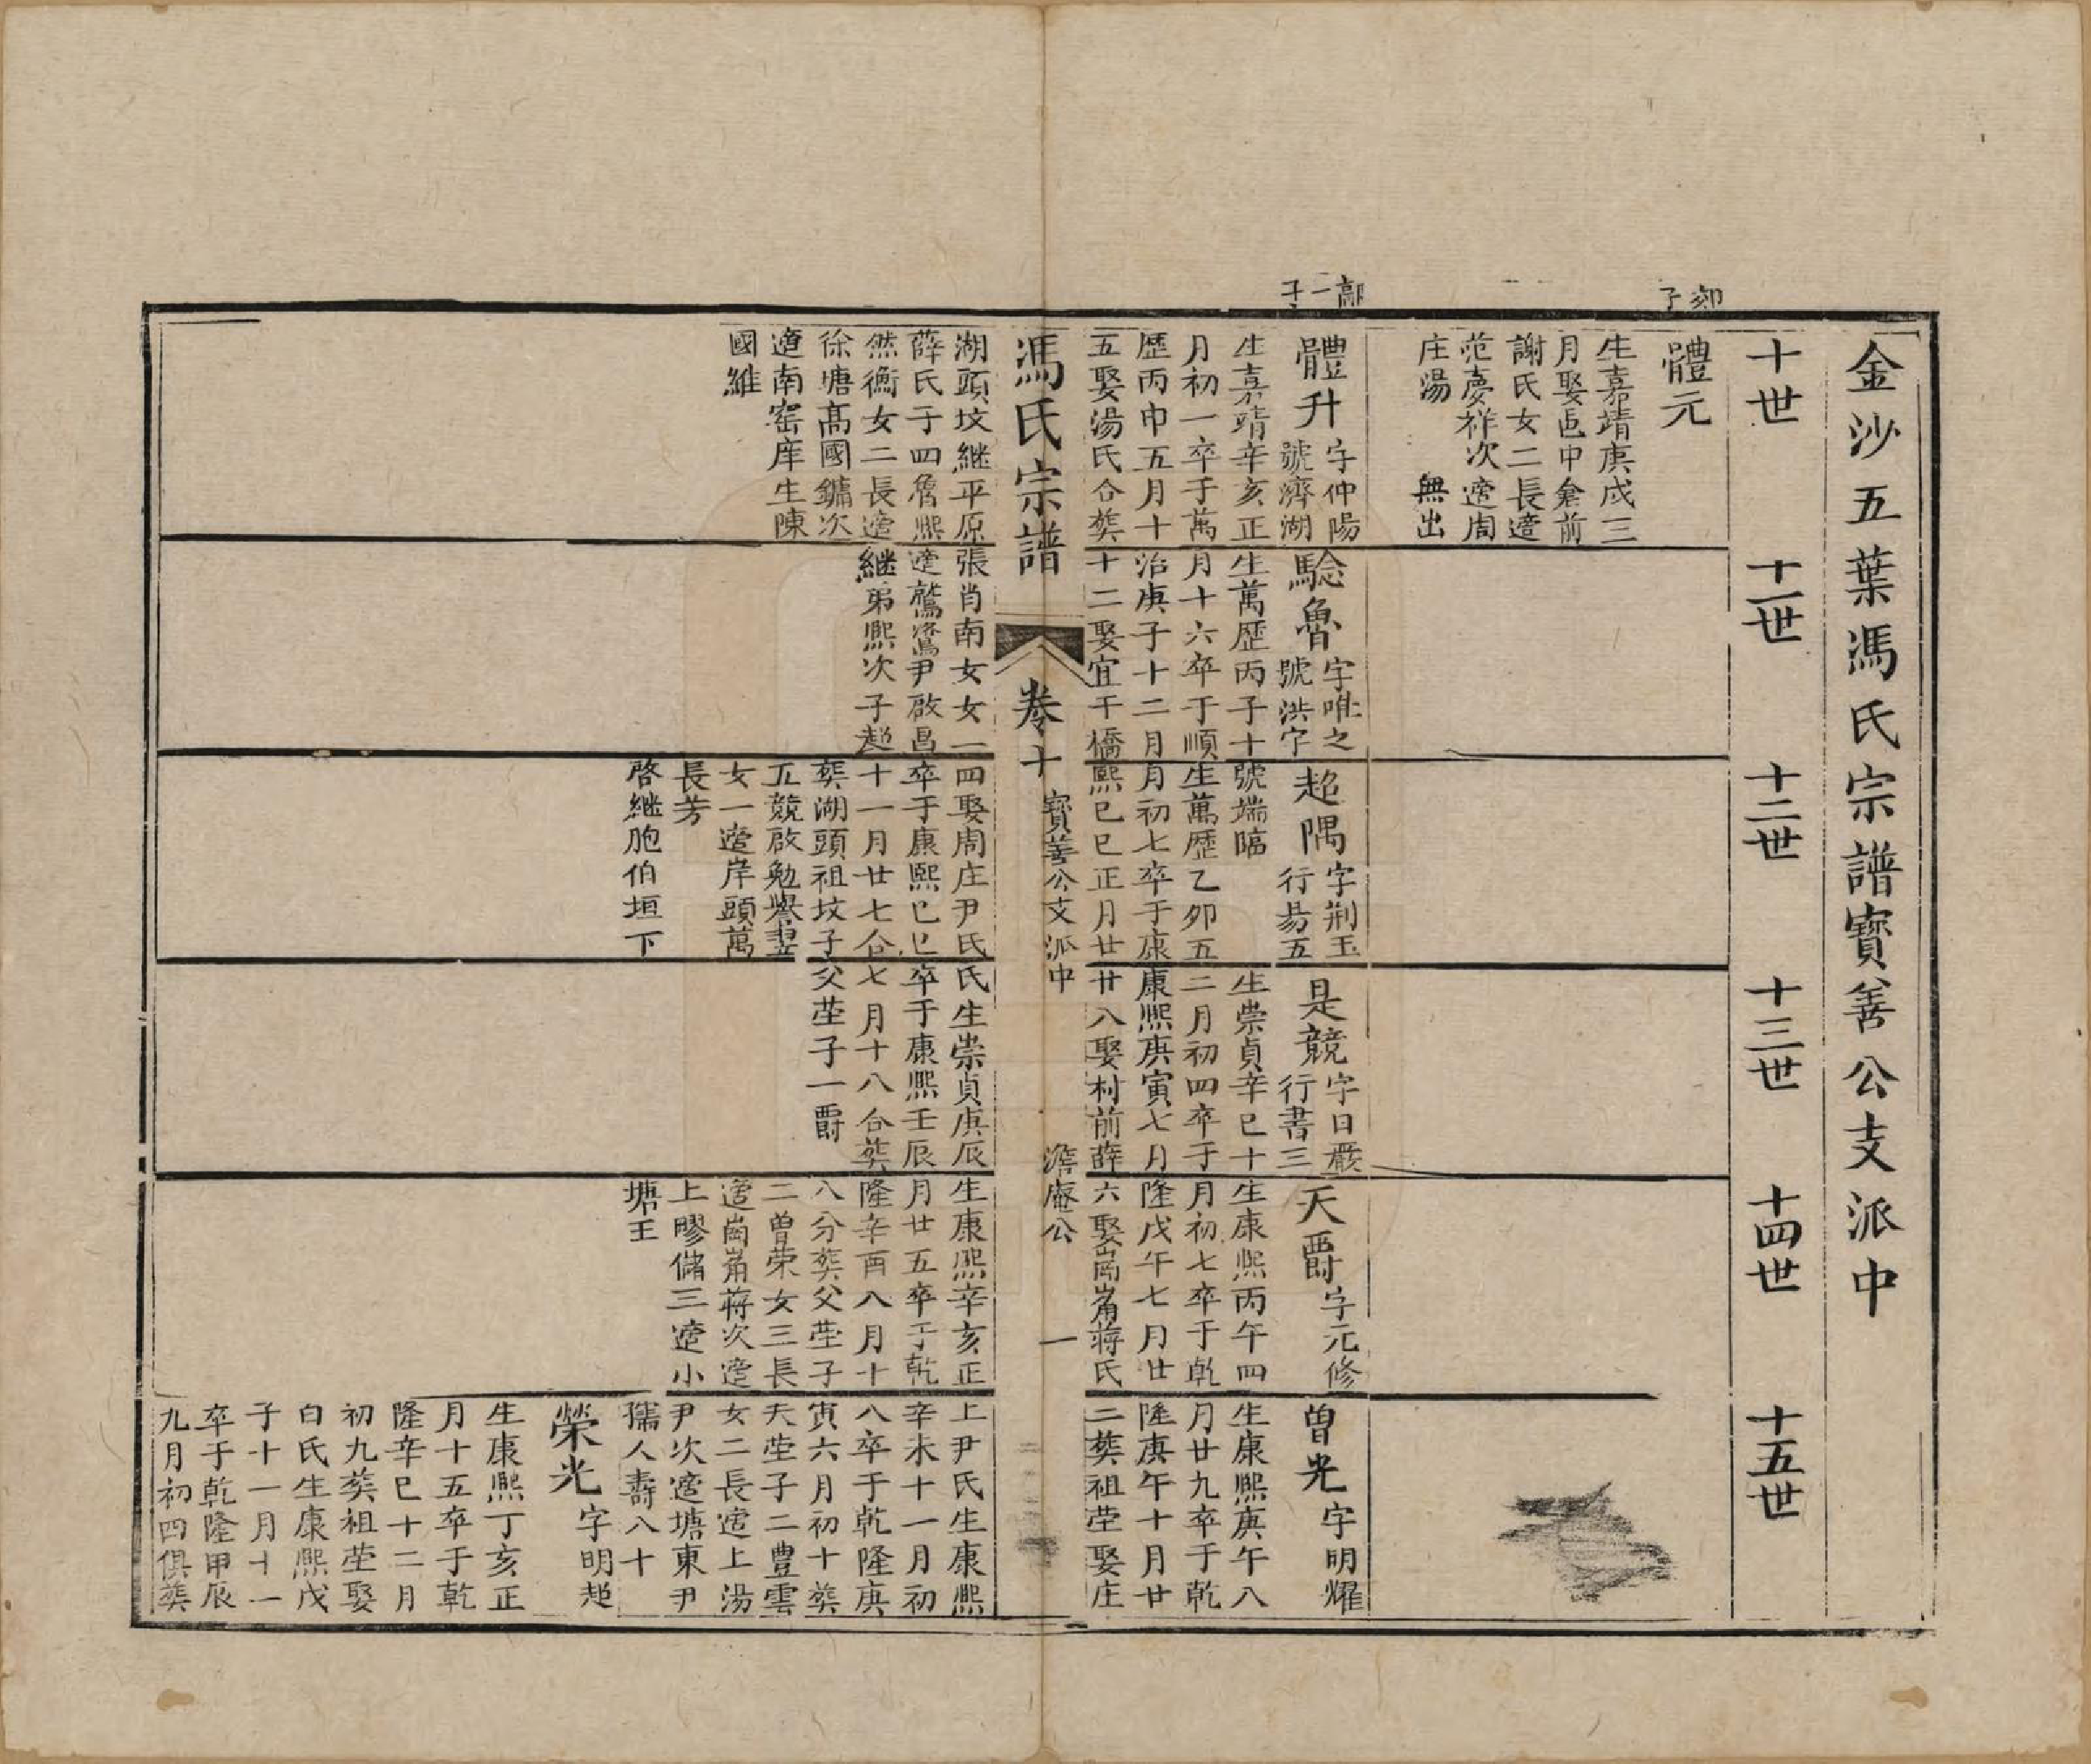 金沙五葉馮氏宗譜寶善公支派中
十世
十一世
十二世
十三世
十四世
十五世
體元
生嘉靖庚戌三
月娶邑中倉前
謝氏女二長適
范慶祥次適周
庄湯　無出
體升
字仲陽
號濟湖
生嘉靖辛亥正
月初一卒于萬
歷丙申五月十
五娶湯氏合葬
湖頭坟継平原
薛氏子四魯熙
然衡女二長適
徐塘高國鏞次
適南窑庠生陳
國維
騐魯
字唯之
號洪宇
生萬歷丙子十
月十六卒于順
治庚子十二月
十二娶宜干橋
張肖南女女一
適鵞鸞尹啟昌
継弟熙次子超
超隅
字荆玉
行昜五
號端臨
生萬歷乙卯五
月初七卒于康
熙己巳正月廿
四娶周庄尹氏
卒于康熙己巳
十一月廿七合
葬湖頭祖坟子
五競啟勉
女一適岸頭萬
長芳
啓継胞伯垣下
是競
字日嚴
行書三
生崇貞辛巳十
二月初四卒于
康熙庚寅七月
廿八娶村前薛
氏生崇貞庚辰
卒于康熙壬辰
七月十八合葬
父茔子一爵
天爵
字元修
生康熙丙午四
月初七卒于乾
隆戊午七月廿
六娶崗崙蔣氏
生康熙辛亥正
月廿五卒于乾
隆辛酉八月十
八分葬父茔子
二曽荣女三長
適崗崙蔣次適
上膠儲三適小
塘王
曽光
字明耀
生康熙庚午八
月廿九卒于乾
隆庚午十月廿
二葬祖茔娶庄
上尹氏生康熙
辛未十一月初
八卒于乾隆庚
寅六月初十葬
夫茔子二豊雲
女二長適上湯
尹次適塘東尹
孺人壽八十
榮光
字明超
生康熙丁亥正
月十五卒于乾
隆辛巳十二月
初九葬祖茔娶
白氏生康熙戊
子十一月十一
卒于乾隆甲辰
九月初四俱葬
馮氏宗譜
卷十
寶善公支派中
澹庵公
一